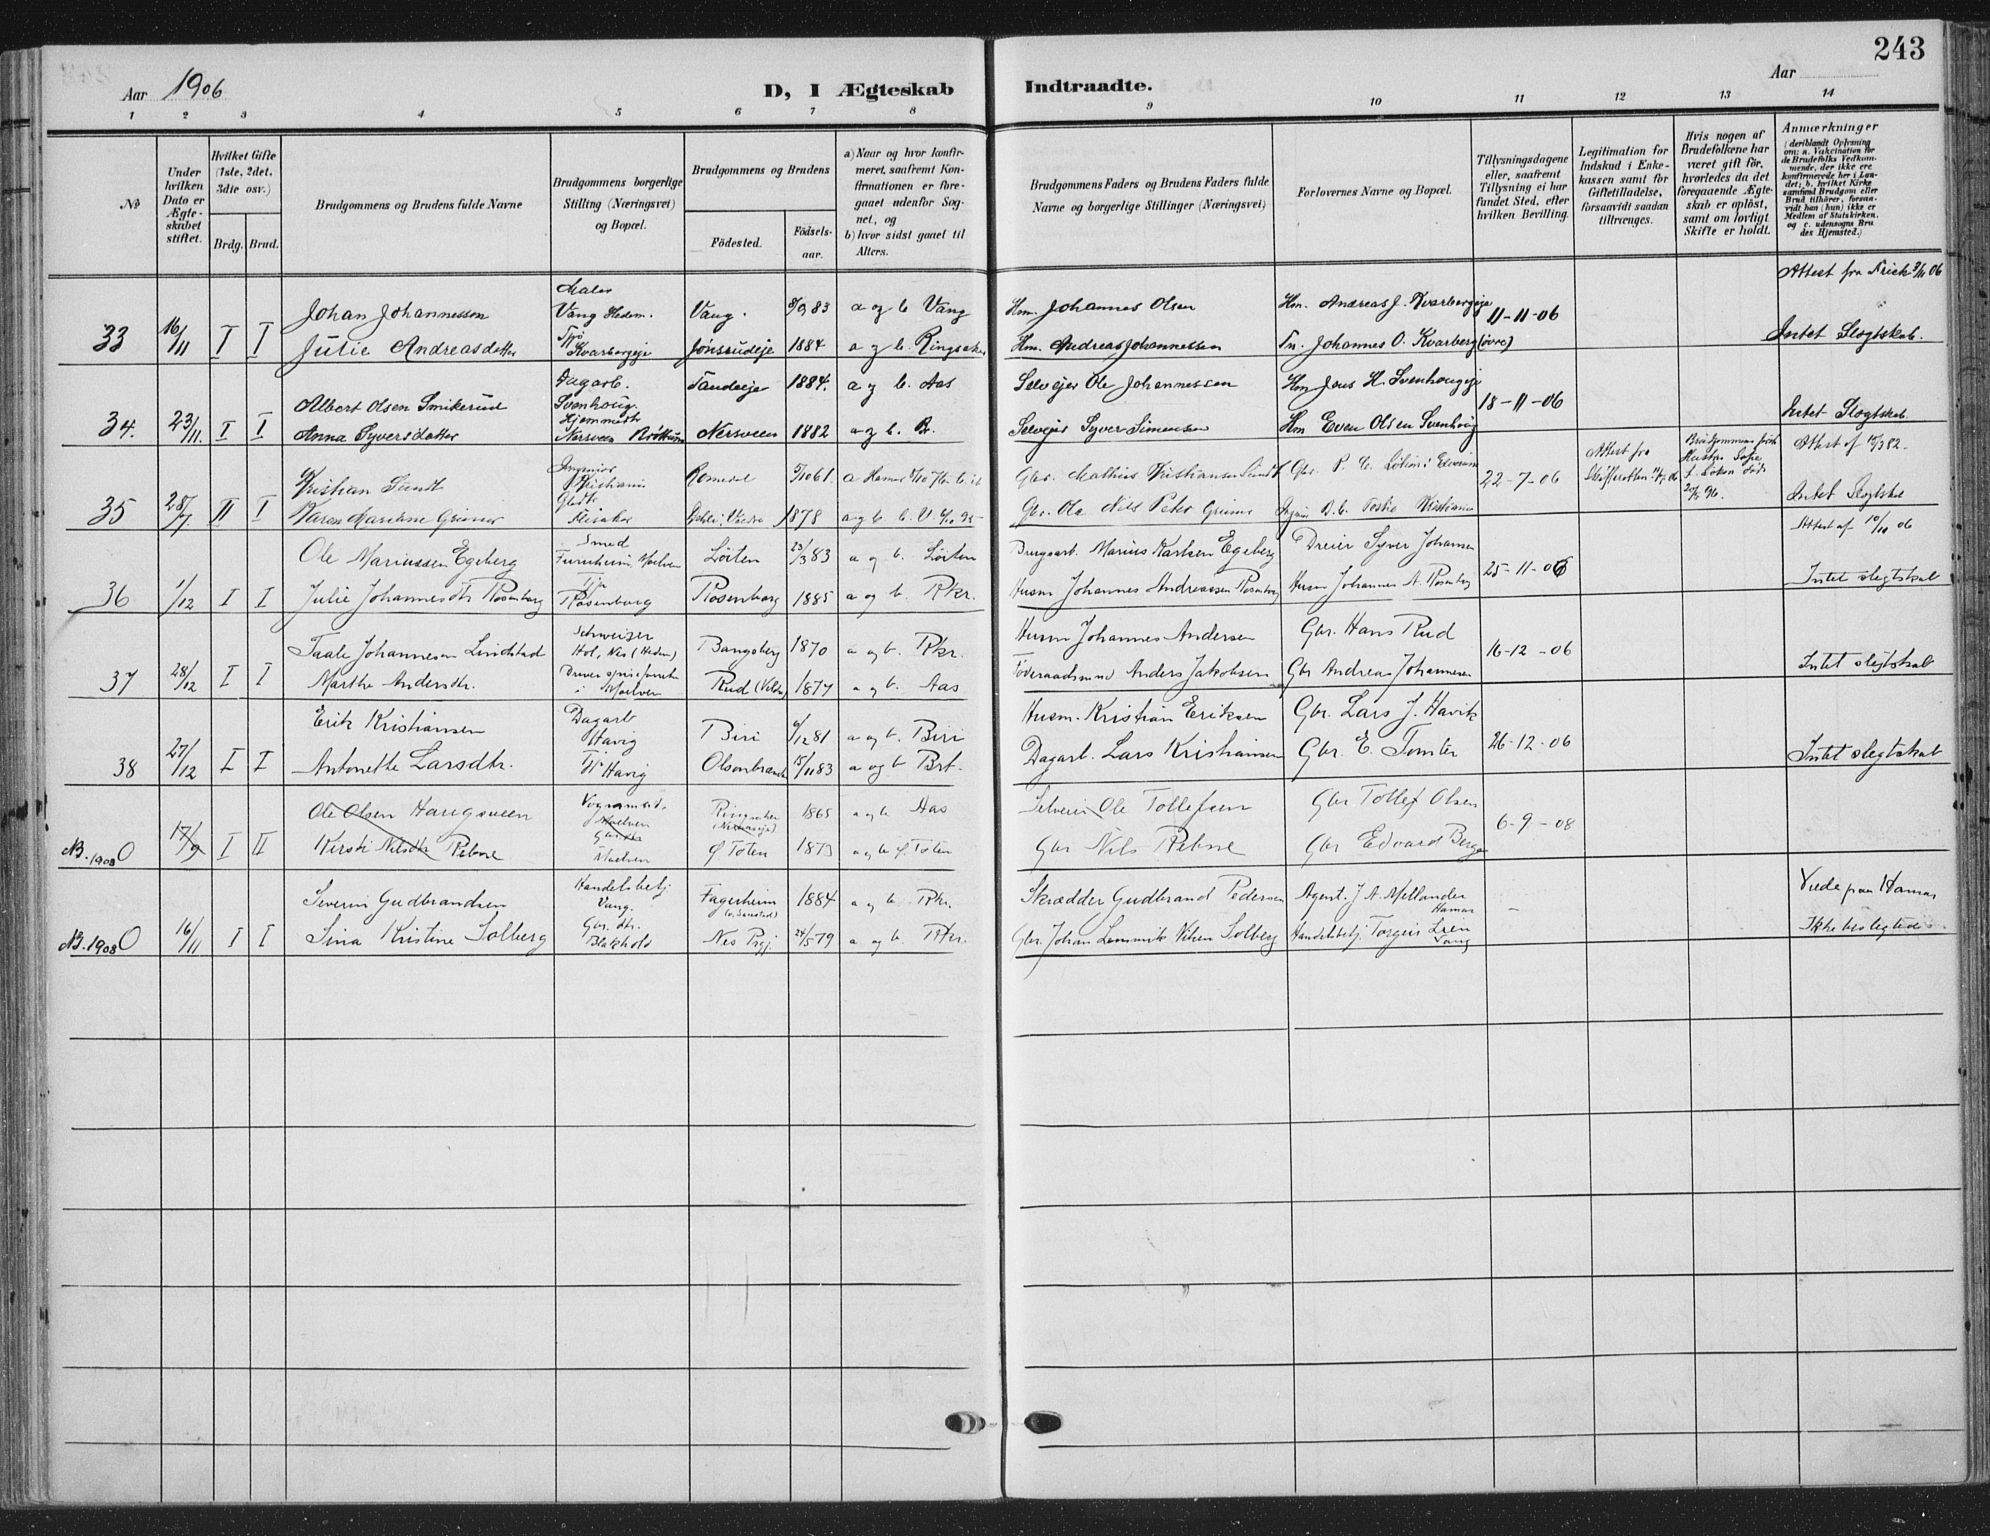 243
Aar 1906
D, I Ægteskab Indtraadte.
Aar
1 2 3 4 5 6 7 8 9 10 11 12 13 14
No
Under hvilken Dato er Ægteskabet stiftet.
Hvilket Gifte (1ste, 2det, 3die osv.)
Brdg. Brud.
Brudgommens og Brudens fulde Navne
Brudgommens borgerlige Stilling (Næringsvei) og Bopæl.
Brudgommens og Brudens
Födested.
Födsels-aar.
a) Naar og hvor konfirmeret, saafremt Konfirmationen er foregaaet udenfor Sognet, og
b) hvor sidst gaaet til Alters.
Brudgommens Faders og Brudens Faders fulde Navne og borgerlige Stillinger (Næringsvei)
Forlovernes Navne og Bopæl.
Tillysningsdagene eller, saafremt Tillysning ei har fundet Sted, efter hvilken Bevilling.
Legitimation for Indskud i Enkekassen samt for Giftetilladelse, forsaavidt saadan tiltrænges.
Hvis nogen af Brudefolkene har været gift før, hvorledes da det foregaaende Ægteskab er oplöst, samt om lovligt Skifte er holdt.
Anmærkninger
(deriblandt Oplysning om: a. Vakcination for de Brudefolks Vedkommende, der ikke ere konfirmerede her i Landet; b. hvilket Kirkesamfund Brudgom eller Brud tilhører, forsaavidt han (hun) ikke er Medlem af Statskirken. og c. udensogns Brudes Hjemsted.)
33 16/11 I I
Johan Johannessen Maler Vang Hedem. Vang. 8/9 83 a og b Vang Hm. Johannes Olsen Hm. Andreas J. Kvarbergeje 11-11-06 Attest fra
Julie Andreasdatter Kvarbergeje Jønsrudeje 1884 a og b. Ringsaker Hm. Andreas Johannessen Johannes O. Kvarberg (øvre) Intet Slegtskab.
34. 23/11. I I
Albert Olsen Smikerud Dagarb. Svenhoug. 1884. a og b. Aas Selvejer Ole Johannessen Hm Jens H. Svenhougeje 18-11-06
Anna Syversdatter Hjemmedtr Nersveen Nersveen 1882 a og b. Br. Selvejer Syver Simensen Hm Even Olsen Svenhoug Intet Slegtskab.
35 28/7 II I
Kristian Sundt Ingeniør Kristiania Romedal 5/10 61 Gbr. Mathias Kristiansen Sundt Gbr. P. C. 22-7-06 Attest fra Skifteretten Attest af
Karen Marthine Grimsr Gbdtr. 1878 Gbr. Ole Nils Peter Kristiania Intet Slegtska
36 1/12 I I
Ole Mariussen Egeberg Smed Furuheim, Moelven Løiten 23/3 83 a og b. Løiten Marius Karlsen Egeberg Dreier Syver Johansen 25-11-06 Attest af 10/10 06
Julie Johannesdtr Rosenberg Tje Rosenborg Rosenborg 1885 a og b. Rkr. Husm Johannes Andreassen Rosenborg Husm Johannes A. Rosenborg Intet slegtskab
37 28/12 I I
Taale Johannesen Lindstad Schweiser Hol, Nes (Hedm) Bangsberg 1870 a og b. Rkr. Husm Johannes Andersen Gbr. Hans Rud 16-12-06
Marthe Andersdtr. i Moelven Rud 1877 a og b. Aas Føderaadsmand Anders Jakobsen Gbr Andreas Johannesen Intet slegtskab
38 27/12 I I
Erik Kristiansen Dagarb Havig Biri 6/12 81 a og b. Biri Husm. Kristian Eriksen Gbr. Lars J. Havik 26-12-06
Antonette Larsdtr. Havig Olsenbraaten 15/11 83 a og b Brt. Dagarb. Lars Kristiansen Gbr. E. Tomter Intet slegtskab
NB. 1908 O 17/9 I II
Ole Olsen Haugsveen Vognmand, Moelven Ringsaker 1865 a og b Aas Selveier Ole Tollefsen Gbr Tollef Olsen 6-9-08
Kirsti Nilsdtr Rebne Moelven Ø. Toten 1873 a og b Ø. Toten Gbr Nils Rebne Gbr Edvard Berge
NB. 1908 O 16/11 I I
Severin Gudbrandsen Handelsbetj Vang. Fagerheim 1884 a og b. Rkr. Skrædder Gudbrand Pedersen Agent. J. A. Mellander Hamar - Viede paa Hamar
Sina Kristine Solberg Gbr. dtr. Nes Prgj. 24/5 79 a og b. Rkr. Gbr. Johan Solberg Handelsbetj. Torgeir Lien Vang Ikke beslegtede.